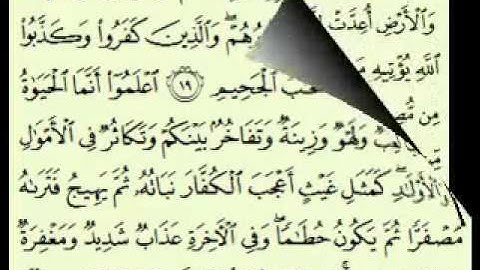 وَٱلْأَرْضِ أُعِدَّتْ وَٱلَّذِينَ كَفَرُوا۟ وَكَذَّبُوا۟
ٱللَّهِ يُؤْتِيهِ ٱلْجَحِيمِ ١٩ ٱعْلَمُوٓا۟ أَنَّمَا ٱلْحَيَوٰةُ
مِن وَلَهْوٌ وَزِينَةٌ وَتَفَاخُرٌۢ بَيْنَكُمْ وَتَكَاثُرٌ فِى ٱلْأَمْوَٰلِ
وَٱلْأَوْلَٰدِ ۖ كَمَثَلِ غَيْثٍ أَعْجَبَ ٱلْكُفَّارَ نَبَاتُهُۥ ثُمَّ يَهِيجُ فَتَرَىٰهُ
مُصْفَرًّا ثُمَّ يَكُونُ حُطَٰمًا ۖ وَفِى ٱلْـَٔاخِرَةِ عَذَابٌ شَدِيدٌ وَمَغْفِرَةٌ